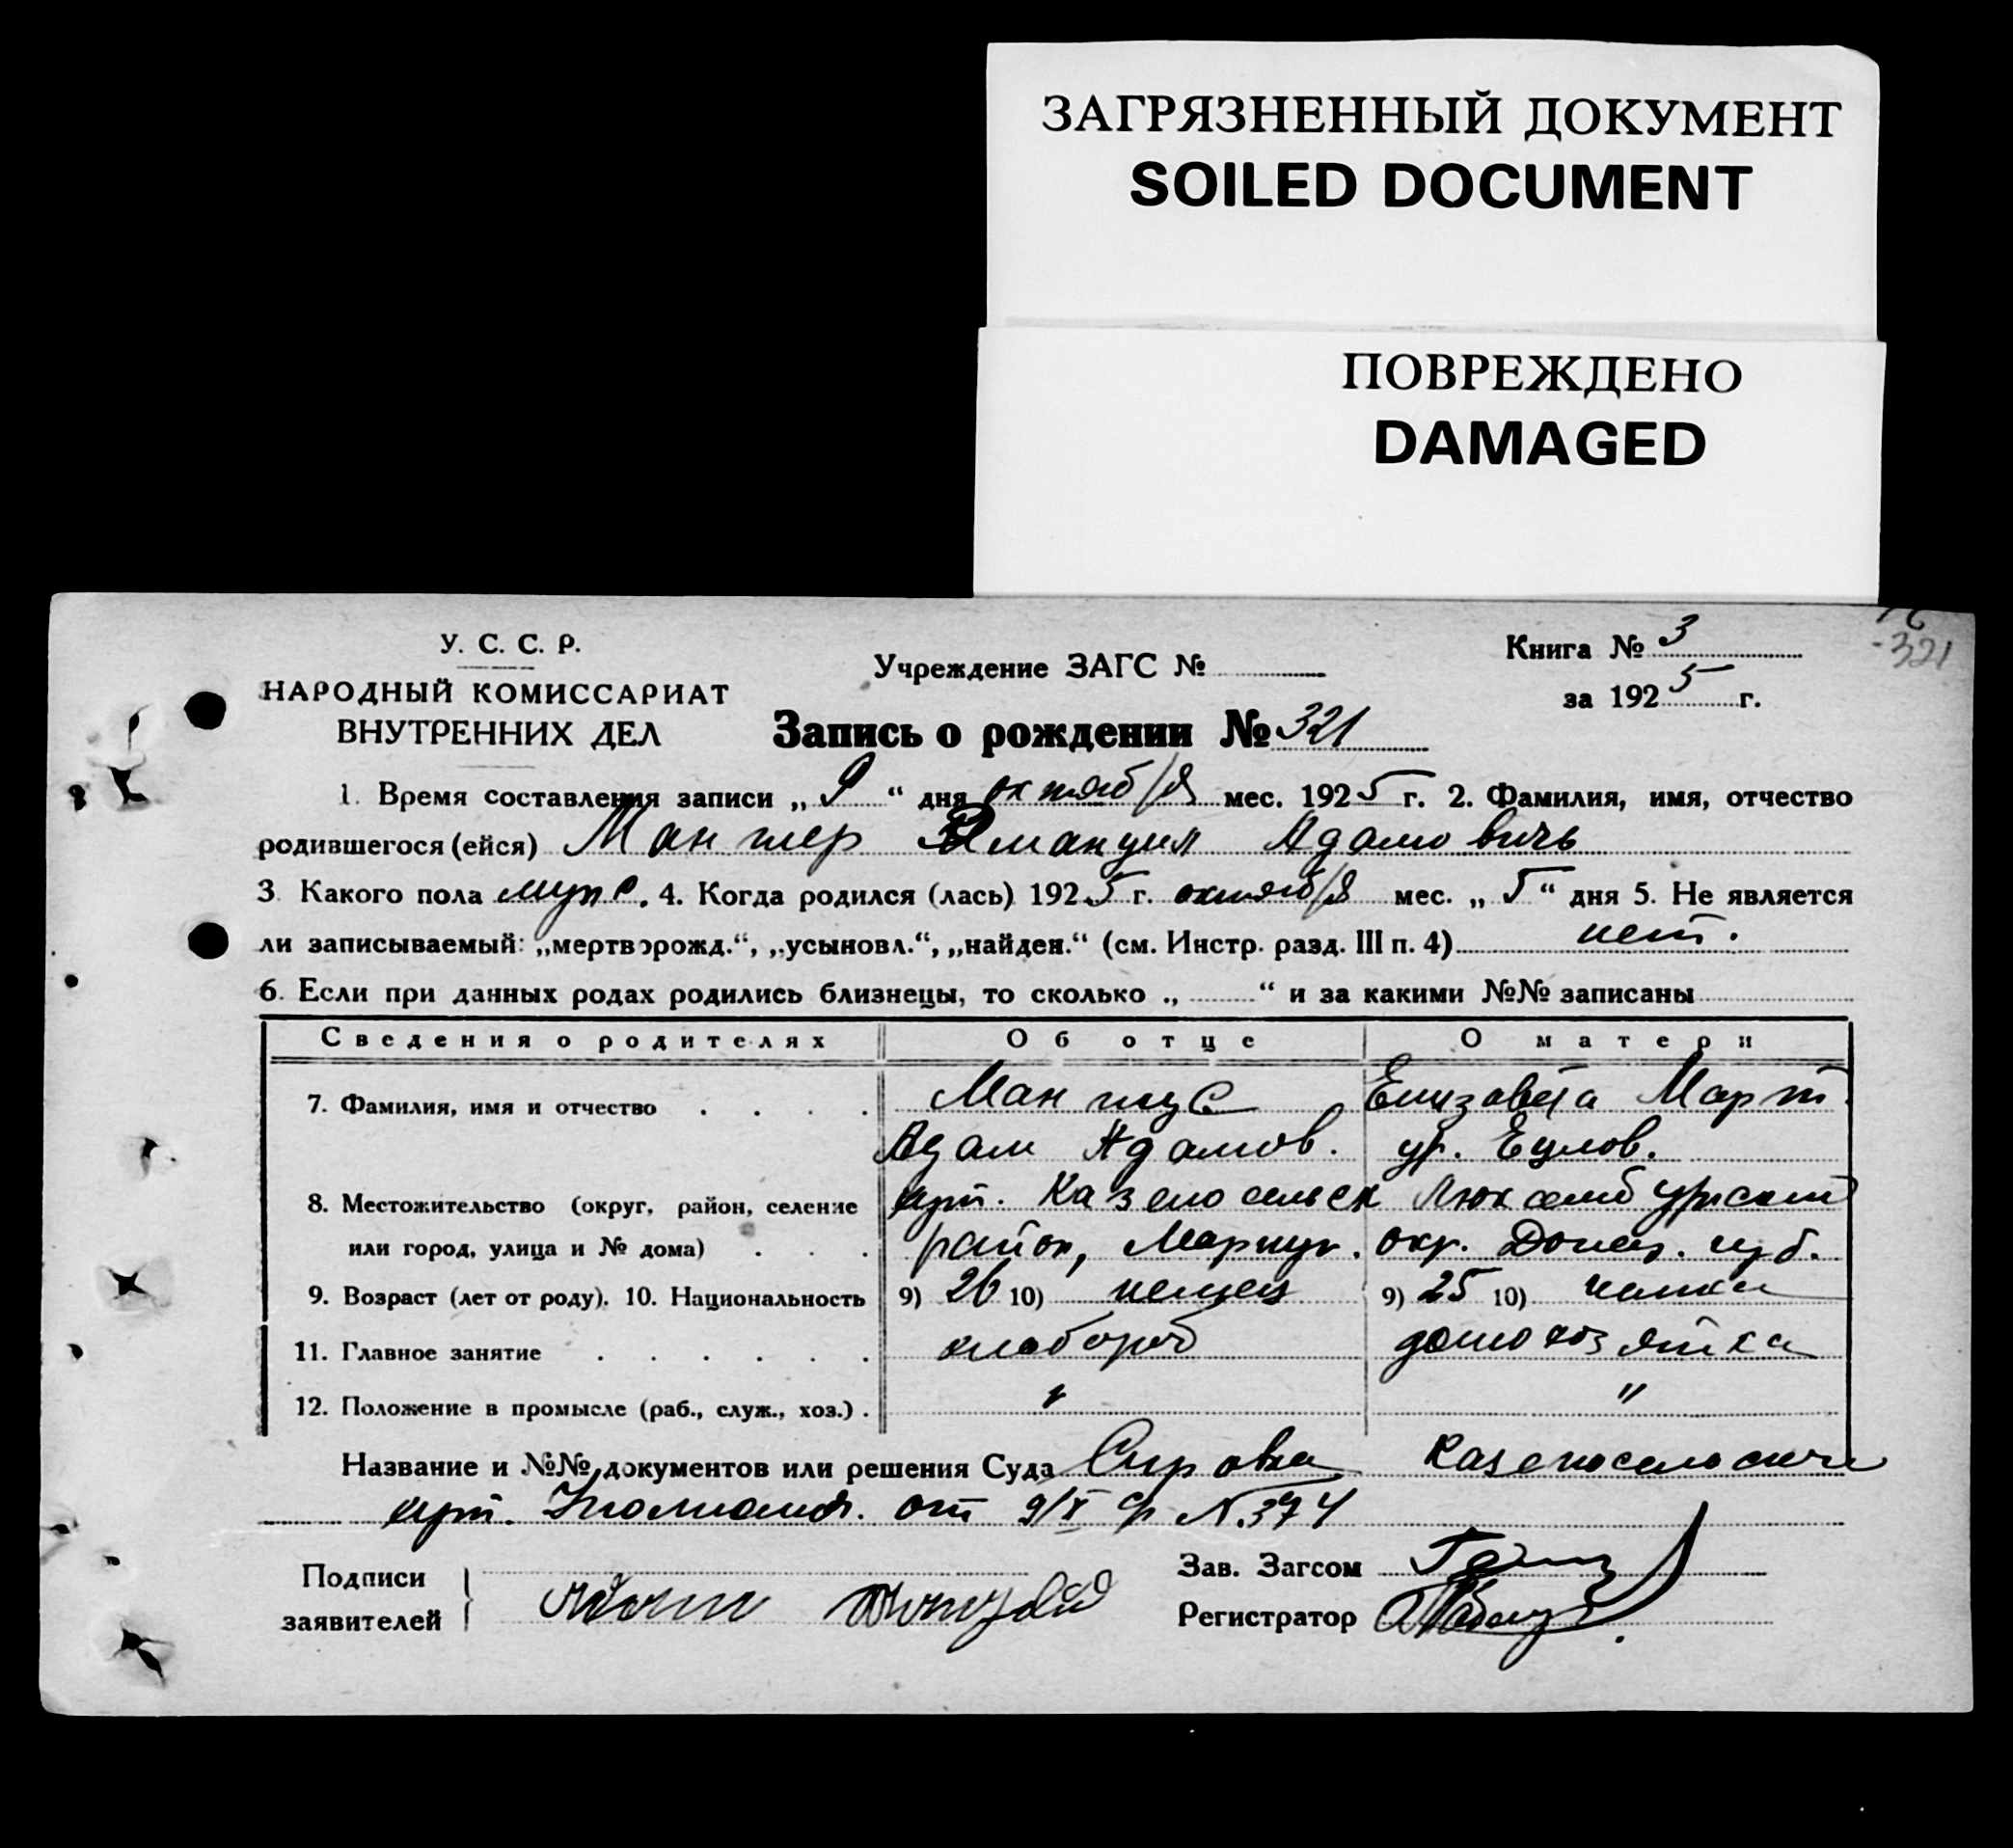 ЗАГРЯЗНЕННЫЙ ДОКУМЕНТ
SOILED DOCUMENT
ПОВРЕЖДЕНО
DAMAGED
-321
У. С. С. Р.
НАРОДНЫЙ КОМИССАРИАТ
ВНУТРЕННИХ ДЕЛ
Учреждение ЗАГС №
Книга № 3
за 1925 г.
Запись о рождении № 321
1. Время составления записи „9“ дня октября мес. 1925 г. 2. Фамилия, имя, отчество
родившегося (ейся) Адамовичъ
3. Какого пола муж. 4. Когда родился (лась) 1925 г. октября мес. „5“ дня 5. Не является
ли записываемый: „мертворожд.“, „усыновл.“, „найден.“ (см. Инстр. разд. III п. 4) нет.
6. Если при данных родах родились близнецы, то сколько „ “ и за какими №№ записаны
Сведения о родителях Об отце О матери
7. Фамилия, имя и отчество Елизавета Март.
Адам Адамов. ур.
8. Местожительство (округ, район, селение Люксембургский
или город, улица и № дома) район, Мариуп. окр. Донец. губ.
9. Возраст (лет от роду). 10. Национальность 9) 26 10) немец 9) 25 10) немка
11. Главное занятие хлебороб домохозяйка
12. Положение в промысле (раб., служ., хоз.) "
Название и №№ документов или решения Суда
от 9/X №. 374
Подписи
заявителей
Зав. Загсом
Регистратор